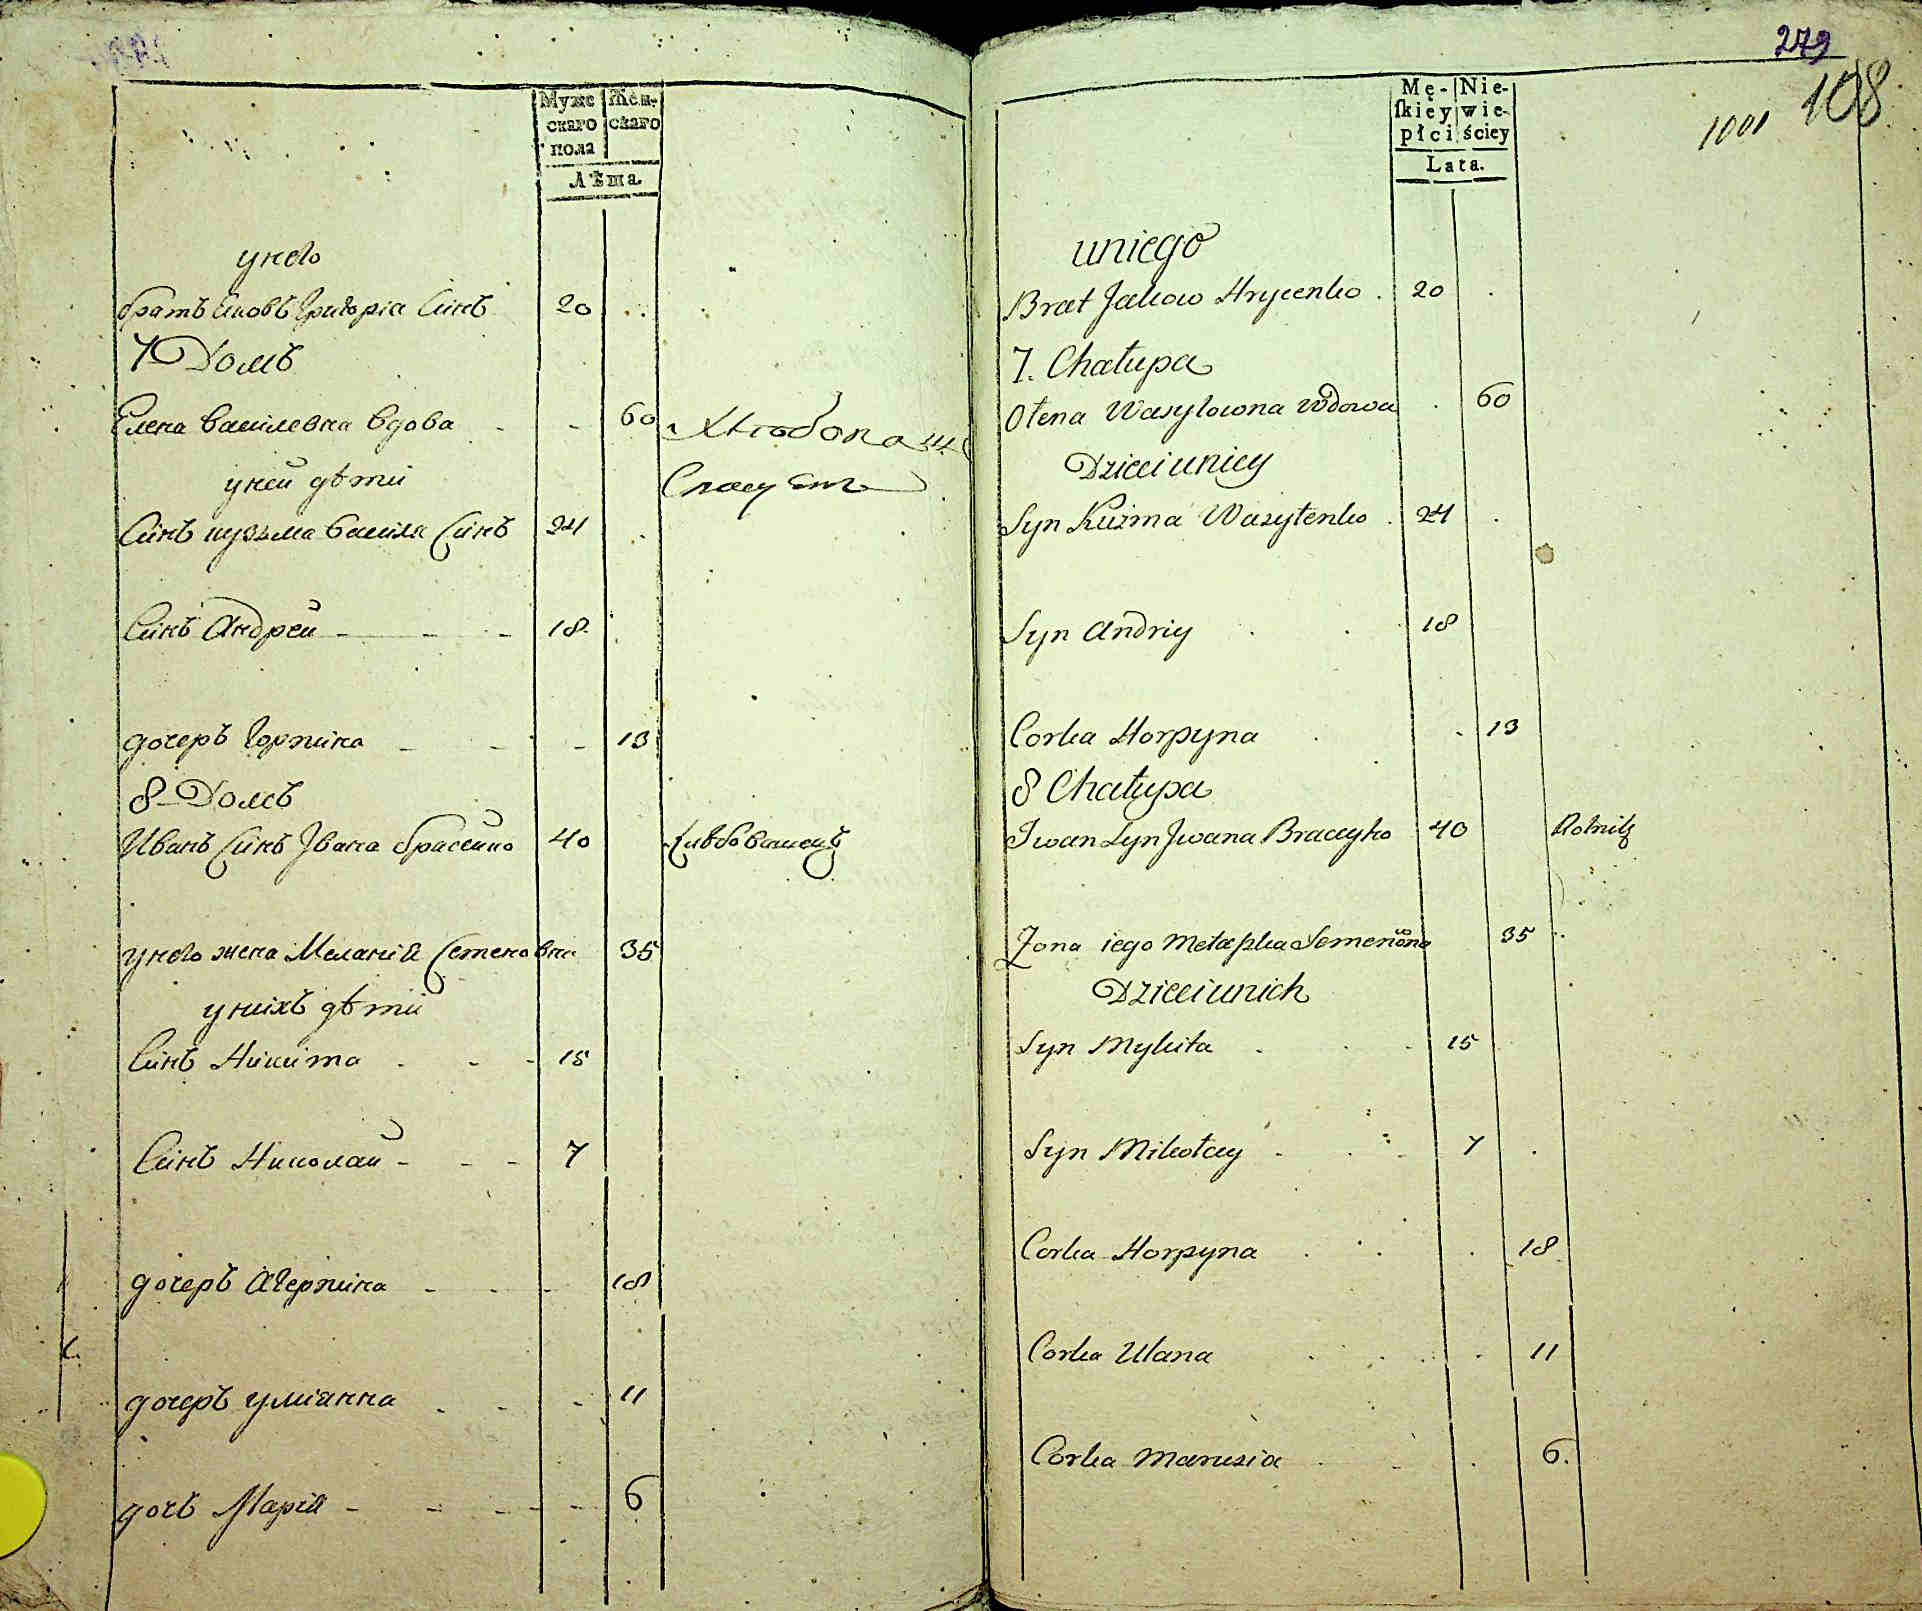 Муже Жен-
скаго скаго
пола
Лѣта.
унего
братъ Яковъ Григоріа Синъ 20
7 Домъ
Елена Василевна вдова 60
уней дѣти
Синъ кузьма василя Синъ 24
Синъ Андрей 18.
дочеръ Горпина 13
8 Домъ
Иванъ Синъ Јвана брасейко 40
унего жена Меланія Семеновна 35
унихъ дѣти
Синъ Никита 15
Синъ Николай 7
дочеръ Агерпина 18
дочеръ улиянна 11
дочъ Марія 6
279
108
1001
Mę- Nie-
ſkiey wie-
płci ściey
Lata.
uniego
Brat Jakow Hrycenko 20
7. Chałupa
Ołena Wasylowna Wdowa 60
Dzieci uniey
Syn Kuzma Wasylenko 24
Syn Andriy 18
Corka Horpyna 13
8 Chałupa
Iwan Syn Jwana Braceyko 40 Rolnik
Zona iego Melaszka Semenowna 35
Dzieci unich
Syn Mykita 15
Syn Mikołay 7
Corka Horpyna 18
Corka Ulana 11
Corka Marusia 6.